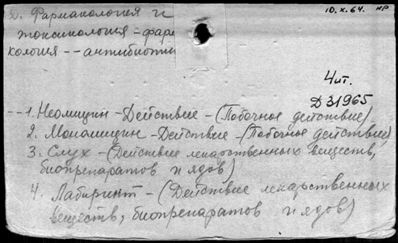 2. Фармакология и
токсикология - фарма
кология -- антибиотики
10.X.64. нр
4ит.
Д31965
-- 1. Неомицин - Действие - (Побочное действие),
2. Мономицин - Действие - (Побочное действие)
3. Слух - (Действие лекарственных веществ,
биопрепаратов и ядов)
4. Лабиринт - (Действие лекарственных
веществ, биопрепаратов и ядов)